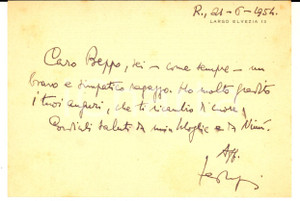 R., 21-6-1954.
LARGO ELVEZIA 10
Caro Beppo, sei - come sempre - un
bravo e simpatico ragazzo. Ho molto gradito
i tuoi auguri, che ti ricambio di cuore.
Cordiali saluti da mia Moglie e da
Aff.